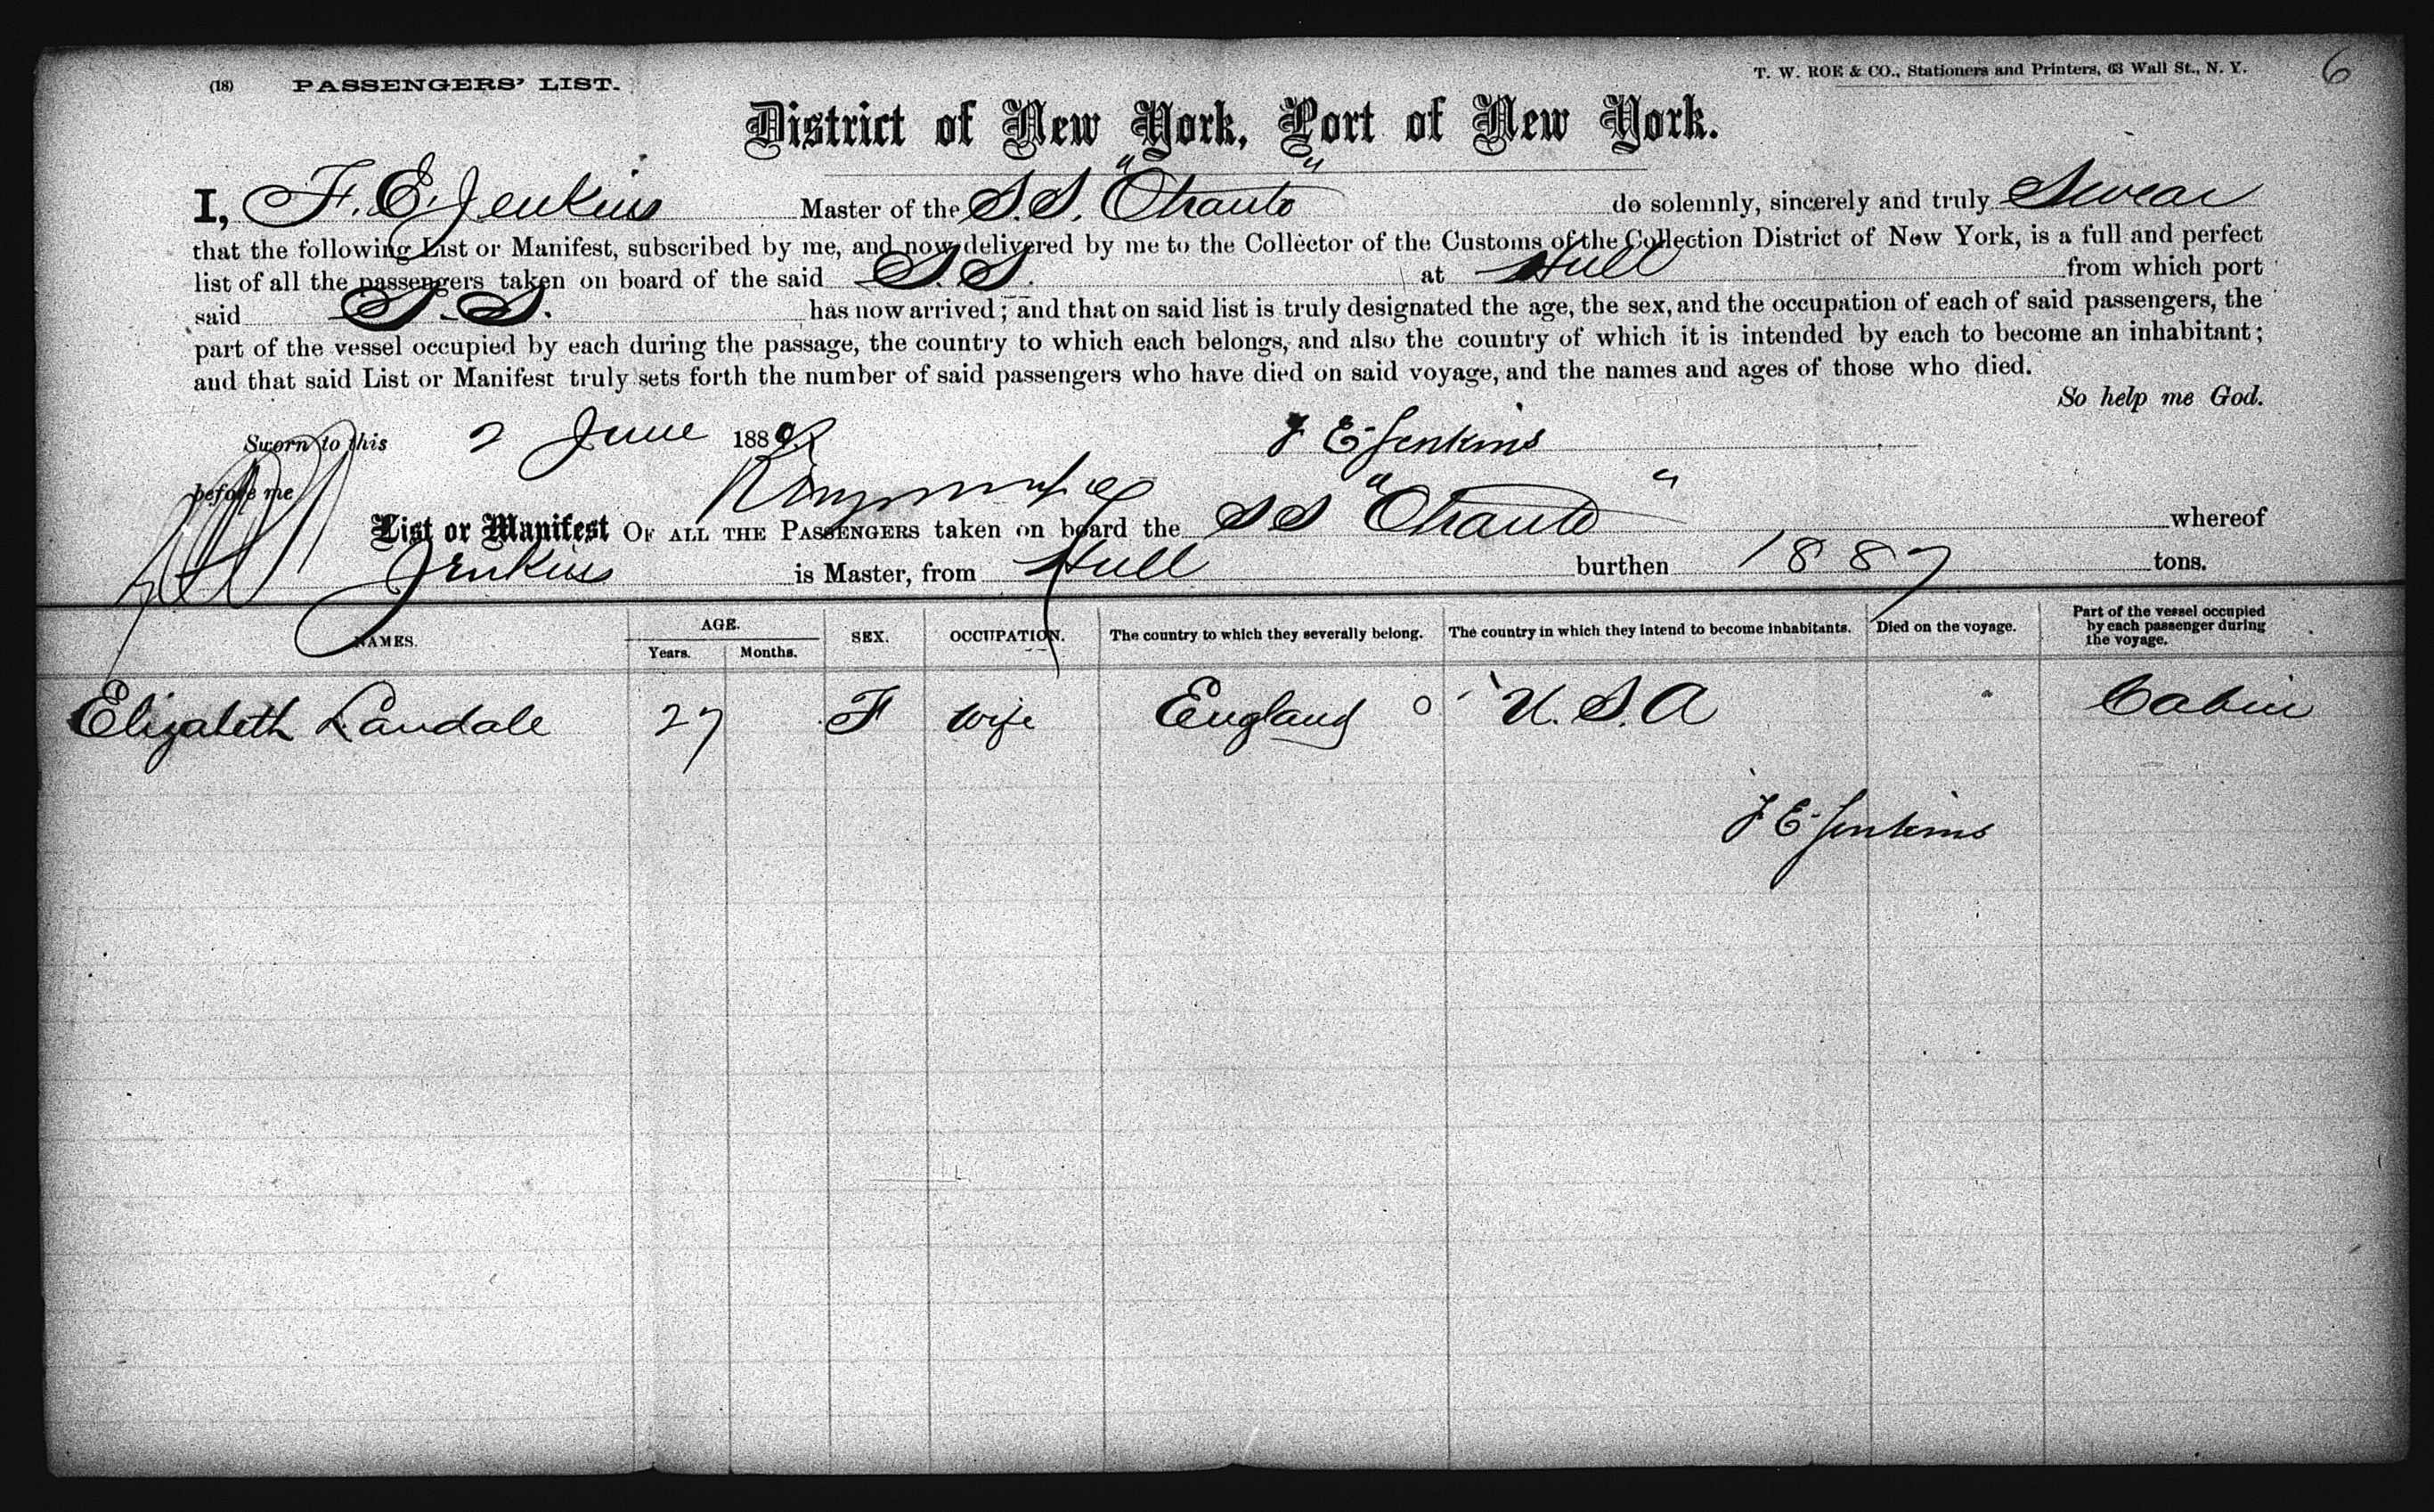 (18) PASSENGERS' LIST.
T. W. ROE & CO., Stationers and Printers, 63 Wall St., N. Y.
6
District of New York, Port of New York.
I, F. E. Jenkins Master of the S.S. "Otranto" do solemnly, sincerely and truly Swear
that the following List or Manifest, subscribed by me, and now delivered by me to the Collector of the Customs of the Collection District of New York, is a full and perfect
list of all the passengers taken on board of the said S.S. at Hull from which port
said S.S. has now arrived; and that on said list is truly designated the age, the sex, and the occupation of each of said passengers, the
part of the vessel occupied by each during the passage, the country to which each belongs, and also the country of which it is intended by each to become an inhabitant;
and that said List or Manifest truly sets forth the number of said passengers who have died on said voyage, and the names and ages of those who died.
So help me God.
Sworn to this 2 June 188
F E Jenkins
before me
List or Manifest OF ALL THE PASSENGERS taken on board the SS "Otranto" whereof
Jenkins is Master, from Hull burthen 1887 tons.
NAMES. AGE. Years. Months. SEX. OCCUPATION. The country to which they severally belong. The country in which they intend to become inhabitants. Died on the voyage. Part of the vessel occupied by each passenger during the voyage.
Elizabeth Landale 27 F Wife England O U.S.A Cabin
F E Jenkins